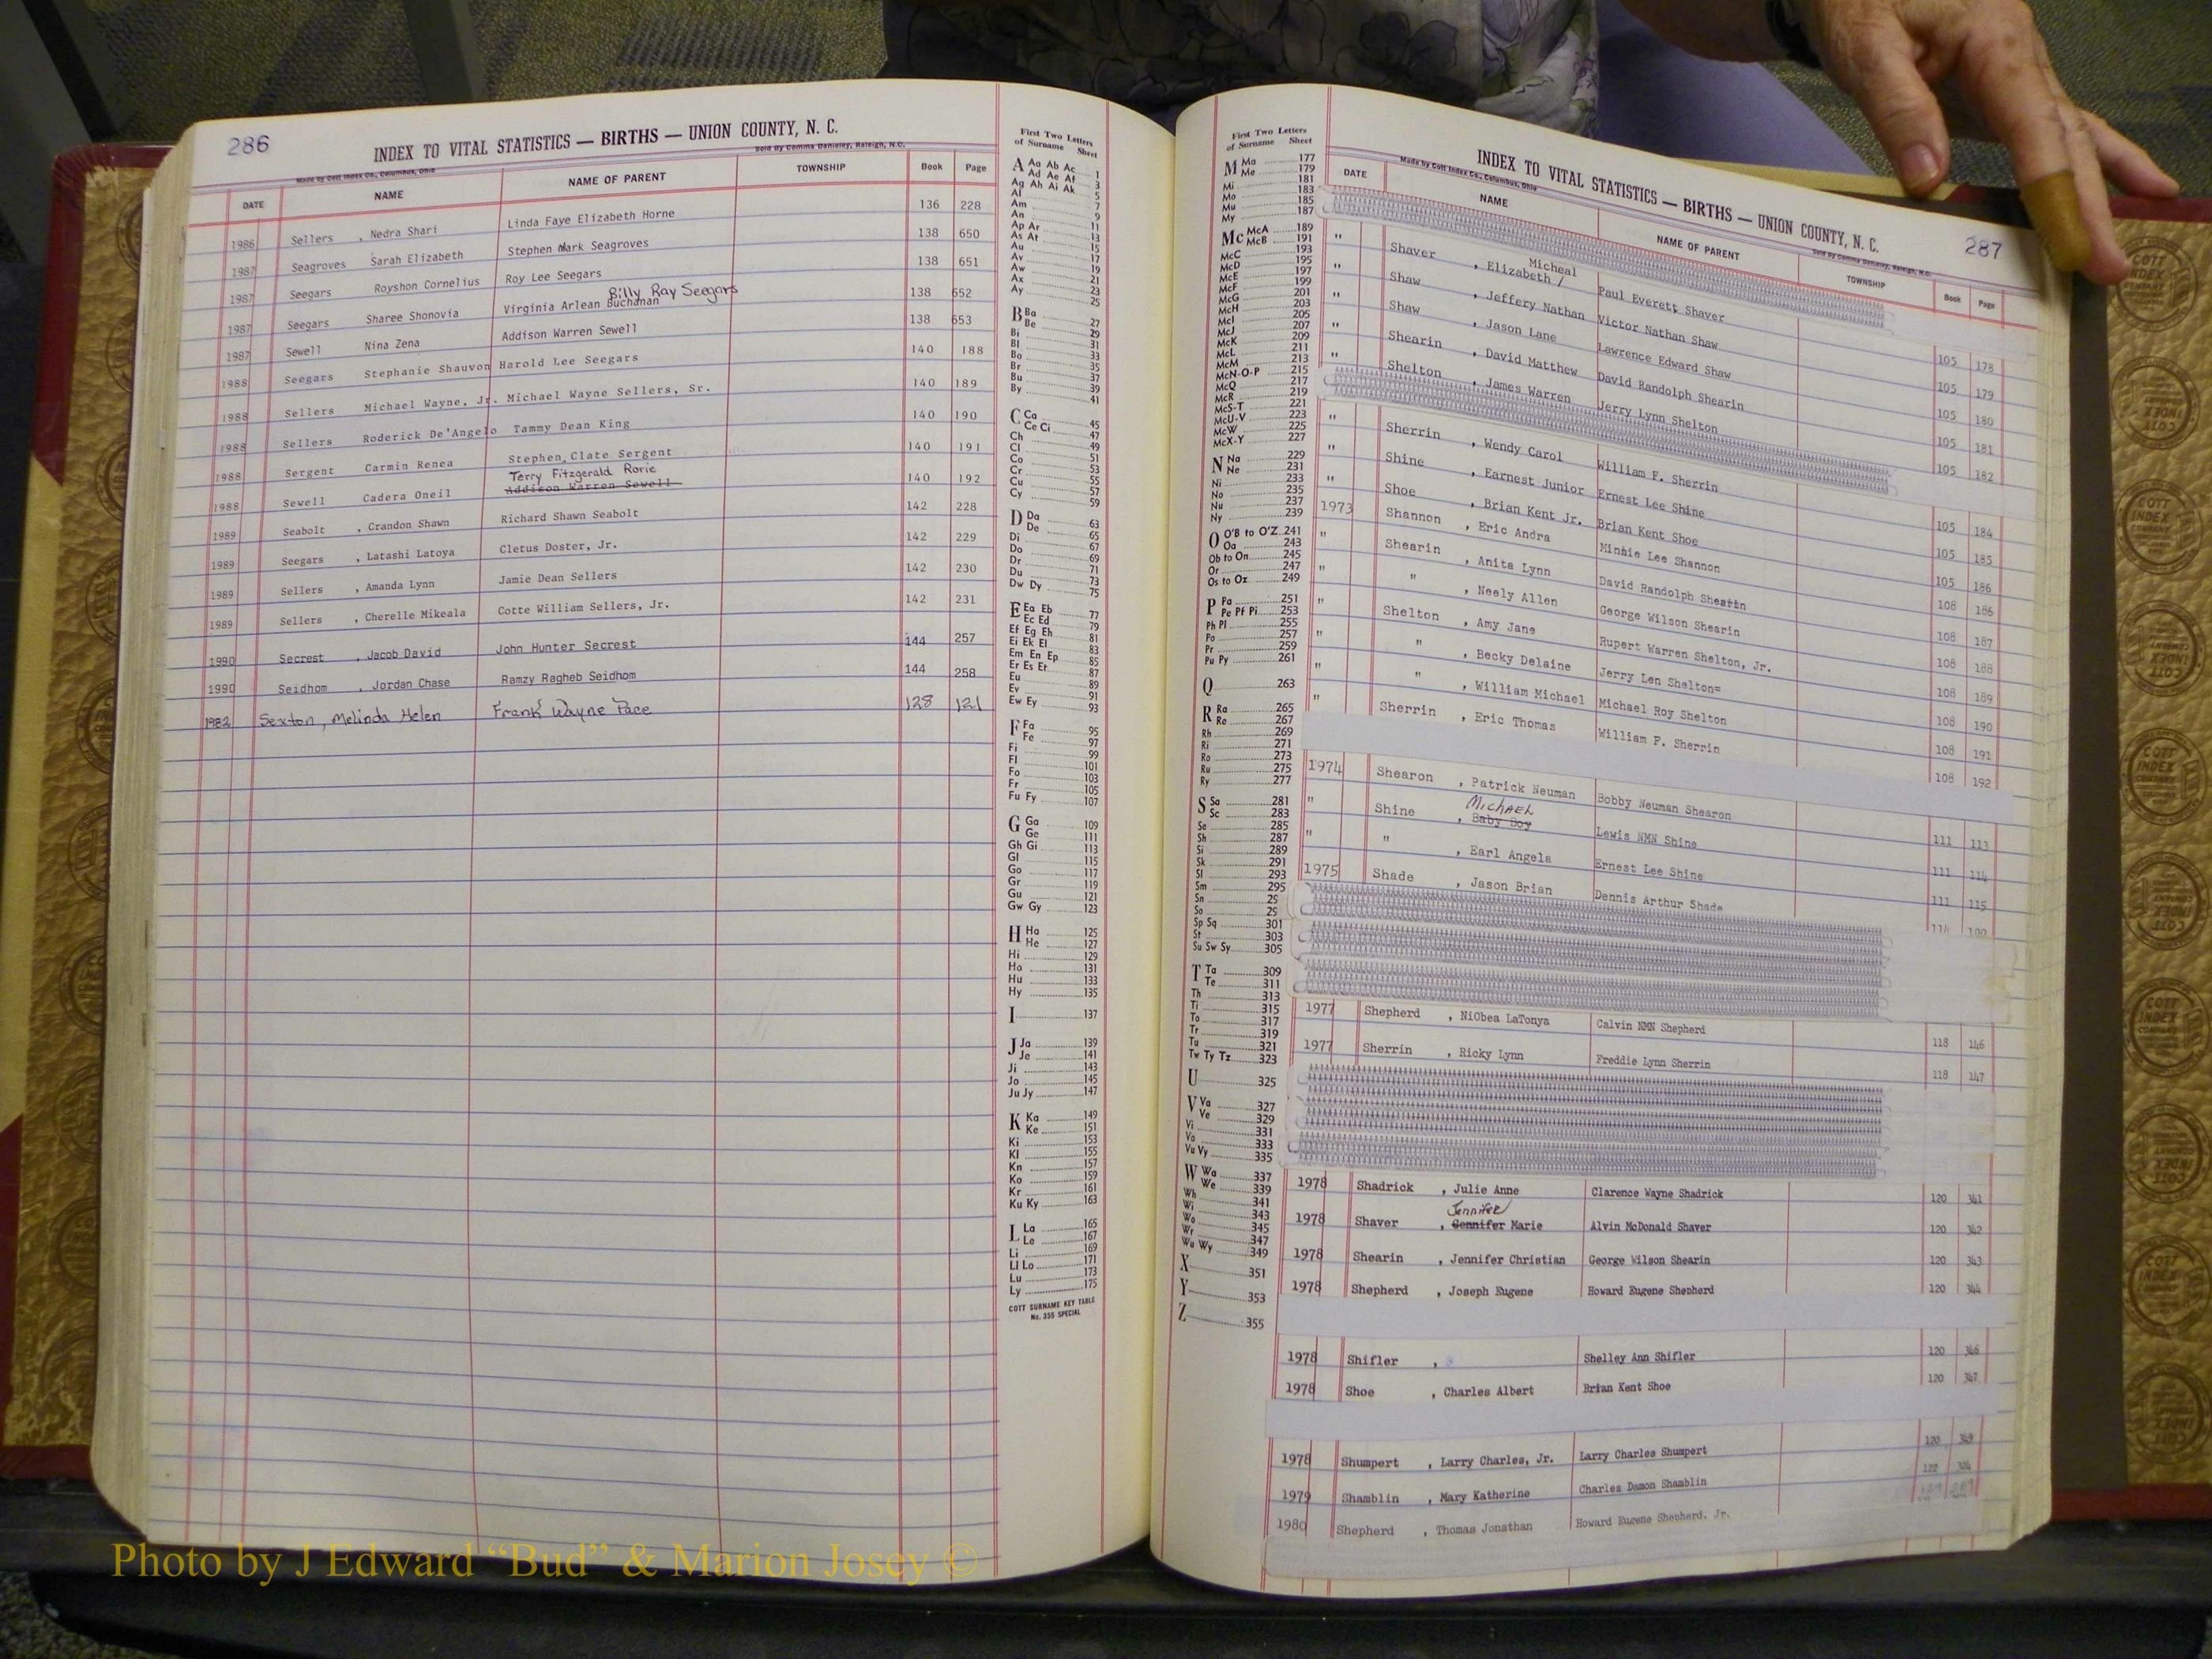 286
INDEX TO VITAL STATISTICS — BIRTHS — UNION COUNTY, N. C.
Made by Cott Index Co., Columbus, Ohio
Sold by Comma Danieley, Raleigh, N.C.
DATE NAME NAME OF PARENT TOWNSHIP Book Page
1986 Sellers , Nedra Shari Linda Faye Elizabeth Horne 136 228
1987 Seagroves Sarah Elizabeth Stephen Mark Seagroves 138 650
1987 Seegars Royshon Cornelius Roy Lee Seegars 138 651
Billy Ray Seegars
1987 Seegars Sharee Shonovia Virginia Arlean Buchanan 138 652
1987 Sewell Nina Zena Addison Warren Sewell 138 653
1988 Seegars Stephanie Shauvon Harold Lee Seegars 140 188
1988 Sellers Michael Wayne, Jr. Michael Wayne Sellers, Sr. 140 189
1988 Sellers Roderick De'Angelo Tammy Dean King 140 190
1988 Sergent Carmin Renea Stephen Clate Sergent 140 191
Terry Fitzgerald Rorie
1988 Sewell Cadera Oneil Addison Warren Sewell 140 192
1989 Seabolt , Crandon Shawn Richard Shawn Seabolt 142 228
1989 Seegars , Latashi Latoya Cletus Doster, Jr. 142 229
1989 Sellers , Amanda Lynn Jamie Dean Sellers 142 230
1989 Sellers , Cherelle Mikeala Cotte William Sellers, Jr. 142 231
1990 Secrest , Jacob David John Hunter Secrest 144 257
1990 Seidhom , Jordan Chase Ramzy Ragheb Seidhom 144 258
1982 Sexton, Melinda Helen Frank Wayne Pace 128 121
First Two Letters
of Surname Sheet
A Aa Ab Ac 1
Ad Ae Af 3
Ag Ah Ai Ak 5
Al 7
Am 9
An 11
Ap Ar 13
As At 15
Au 17
Av 19
Aw 21
Ax 23
Ay 25
B Ba 27
Be 29
Bi 31
Bl 33
Bo 35
Br 37
Bu 39
By 41
C Ca 45
Ce Ci 47
Ch 49
Cl 51
Co 53
Cr 55
Cu 57
Cy 59
D Da 63
De 65
Di 67
Do 69
Dr 71
Du 73
Dw Dy 75
E Ea Eb 77
Ec Ed 79
Ef Eg Eh 81
Ei Ek El 83
Em En Ep 85
Er Es Et 87
Eu 89
Ev 91
Ew Ey 93
F Fa 95
Fe 97
Fi 99
Fl 101
Fo 103
Fr 105
Fu Fy 107
G Ga 109
Ge 111
Gh Gi 113
Gl 115
Go 117
Gr 119
Gu 121
Gw Gy 123
H Ha 125
He 127
Hi 129
Ho 131
Hu 133
Hy 135
I 137
J Ja 139
Je 141
Ji 143
Jo 145
Ju Jy 147
K Ka 149
Ke 151
Ki 153
Kl 155
Kn 157
Ko 159
Kr 161
Ku Ky 163
L La 165
Le 167
Li 169
Ll Lo 171
Lu 173
Ly 175
COTT SURNAME KEY TABLE
No. 355 SPECIAL
First Two Letters
of Surname Sheet
M Ma 177
Me 179
Mi 181
Mo 183
Mu 185
My 187
Mc McA 189
McB 191
McC 193
McD 195
McE 197
McF 199
McG 201
McH 203
McI 205
McJ 207
McK 209
McL 211
McM 213
McN-O-P 215
McQ 217
McR 219
McS-T 221
McU-V 223
McW 225
McX-Y 227
N Na 229
Ne 231
Ni 233
No 235
Nu 237
Ny 239
O O'B to O'Z 241
Oa 243
Ob to On 245
Or 247
Os to Oz 249
P Pa 251
Pe Pf Pi 253
Ph Pl 255
Po 257
Pr 259
Pu Py 261
Q 263
R Ra 265
Re 267
Rh 269
Ri 271
Ro 273
Ru 275
Ry 277
S Sa 281
Sc 283
Se 285
Sh 287
Si 289
Sk 291
Sl 293
Sm 295
Sn 29
So 29
Sp Sq 301
St 303
Su Sw Sy 305
T Ta 309
Te 311
Th 313
Ti 315
To 317
Tr 319
Tu 321
Tw Ty Tz 323
U 325
V Va 327
Ve 329
Vi 331
Vo 333
Vu Vy 335
W Wa 337
We 339
Wh 341
Wi 343
Wo 345
Wr 347
Wu Wy 349
X 351
Y 353
Z 355
INDEX TO VITAL STATISTICS — BIRTHS — UNION COUNTY, N. C.
287
Made by Cott Index Co., Columbus, Ohio
Sold by Comma Danieley, Raleigh, N.C.
DATE NAME NAME OF PARENT TOWNSHIP Book Page
Micheal
" Shaver , Elizabeth / Paul Everett Shaver 105 178
" Shaw , Jeffery Nathan Victor Nathan Shaw 105 179
" Shaw , Jason Lane Lawrence Edward Shaw 105 180
" Shearin , David Matthew David Randolph Shearin 105 181
" Shelton , James Warren Jerry Lynn Shelton 105 182
" Sherrin , Wendy Carol William F. Sherrin 105 184
" Shine , Earnest Junior Ernest Lee Shine 105 185
" Shoe , Brian Kent Jr. Brian Kent Shoe 105 186
1973 Shannon , Eric Andra Minnie Lee Shannon 108 186
" Shearin , Anita Lynn David Randolph Shearin 108 187
" " , Neely Allen George Wilson Shearin 108 188
" Shelton , Amy Jane Rupert Warren Shelton, Jr. 108 189
" " , Becky Delaine Jerry Len Shelton= 108 190
" " , William Michael Michael Roy Shelton 108 191
" Sherrin , Eric Thomas William F. Sherrin 108 192
1974 Shearon , Patrick Neuman Bobby Neuman Shearon 111 113
Michael
" Shine , Baby Boy Lewis NMN Shine 111 114
" " , Earl Angela Ernest Lee Shine 111 115
1975 Shade , Jason Brian Dennis Arthur Shade
1977 Shepherd , NiObea LaTonya Calvin NMN Shepherd 118 146
1977 Sherrin , Ricky Lynn Freddie Lynn Sherrin 118 147
1978 Shadrick , Julie Anne Clarence Wayne Shadrick 120 341
Jennifer
1978 Shaver , Gennifer Marie Alvin McDonald Shaver 120 342
1978 Shearin , Jennifer Christian George Wilson Shearin 120 343
1978 Shepherd , Joseph Eugene Howard Eugene Shepherd 120 344
1978 Shifler , Shelley Ann Shifler 120 346
1978 Shoe , Charles Albert Brian Kent Shoe 120 347
1978 Shumpert , Larry Charles, Jr. Larry Charles Shumpert 120 349
1979 Shamblin , Mary Katherine Charles Damon Shamblin
1980 Shepherd , Thomas Jonathan Howard Eugene Shepherd, Jr.
Photo by J Edward “Bud” & Marion Josey ©